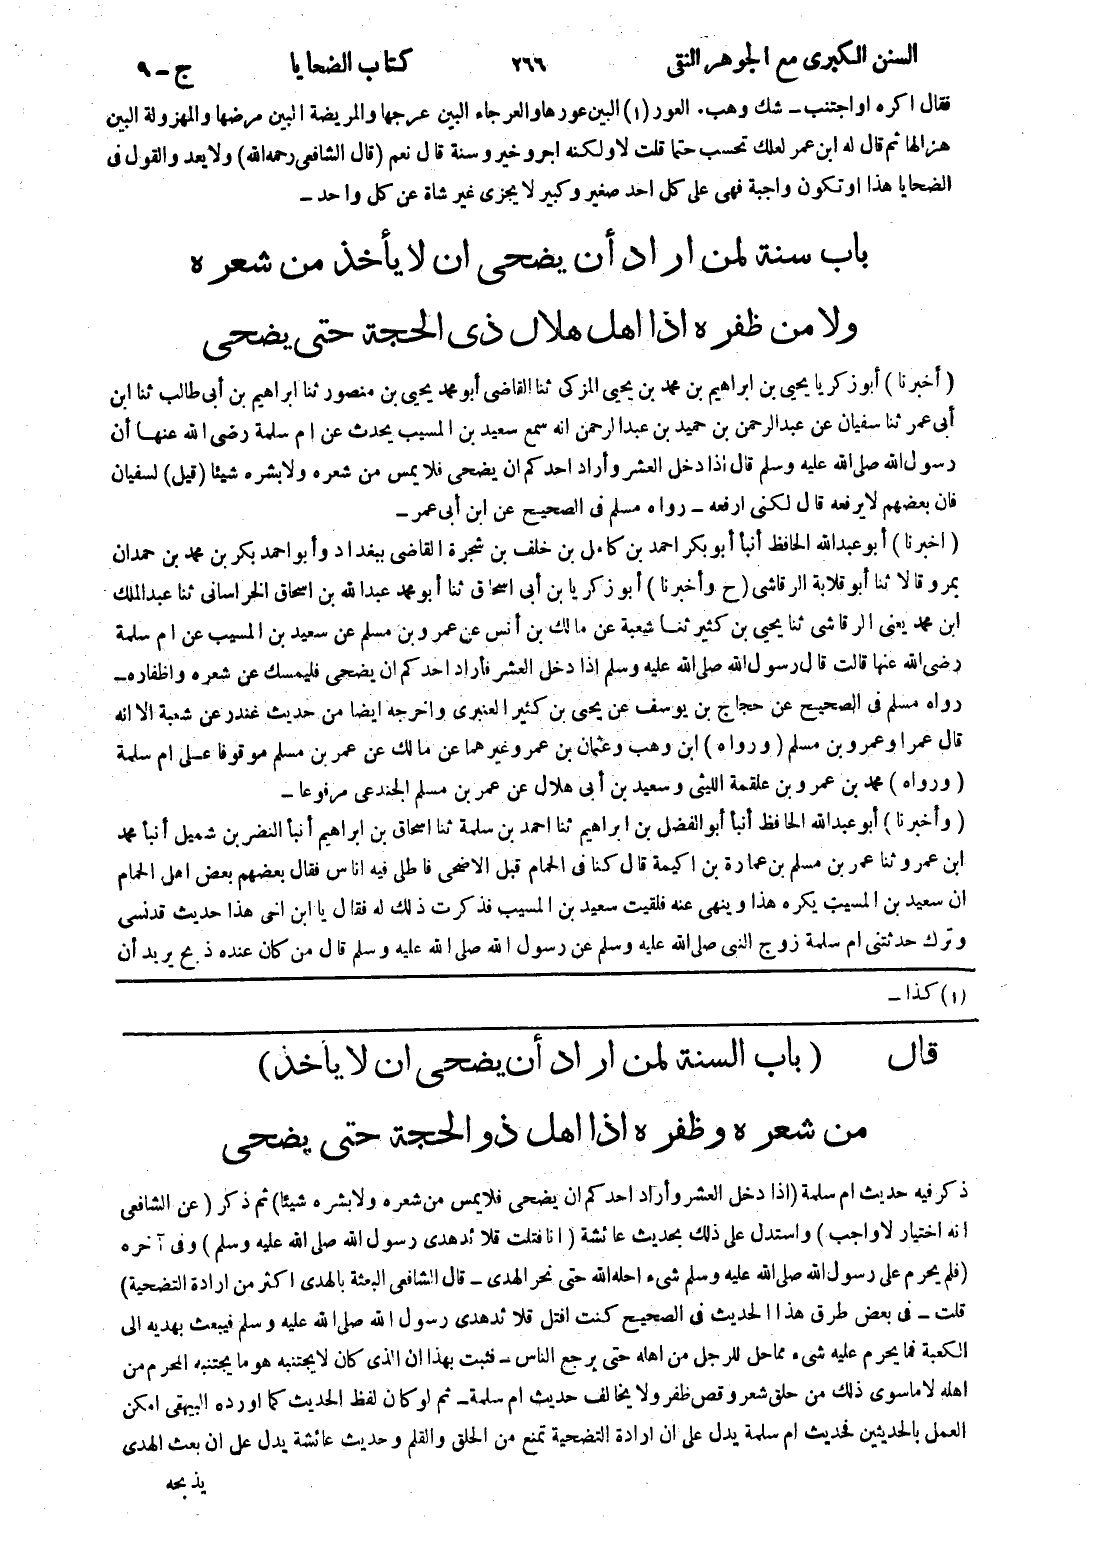 السنن الكبرى مع الجوهر النقى ٢٦٦ كتاب الضحايا ج-٩
فقال اكره او اجتنب - شك وهب. العور (١) البين عورها والعرجاء البين عرجها والمريضة البين مرضها والمهزولة البين
هزالها ثم قال له ابن عمر لعلك تحسب حتما قلت لا ولكنه اجر وخير وسنة قال نعم (قال الشافعى رحمه الله) ولا يعد والقول فى
الضحايا هذا او تكون واجبة فهى على كل احد صغير وكبير لا يجزى غير شاة عن كل واحد -
باب سنة لمن اراد أن يضحى ان لا يأخذ من شعره
ولا من ظفره اذا اهل هلال ذى الحجة حتى يضحى
(أخبرنا) أبو زكريا يحيى بن ابراهيم بن محمد بن يحيى المزكى ثنا القاضى أبو محمد يحيى بن منصور ثنا ابراهيم بن أبى طالب ثنا ابن
أبى عمر ثنا سفيان عن عبدالرحمن بن حميد بن عبدالرحمن انه سمع سعيد بن المسيب يحدث عن ام سلمة رضى الله عنها أن
رسول الله صلى الله عليه وسلم قال اذا دخل العشر وأراد احدكم ان يضحى فلا يمس من شعره ولا بشره شيئا (قيل) لسفيان
فان بعضهم لا يرفعه قال لكنى ارفعه - رواه مسلم فى الصحيح عن ابن أبى عمر -
(اخبرنا) أبو عبدالله الحافظ أنبأ أبو بكر احمد بن كامل بن خلف بن شجرة القاضى ببغداد وأبو احمد بكر بن محمد بن حمدان
بمرو قالا ثنا أبو قلابة الرقاشى (ح وأخبرنا) أبو زكريا بن أبى اسحاق ثنا أبو محمد عبدالله بن اسحاق الخراسانى ثنا عبدالملك
ابن محمد يعنى الرقاشى ثنا يحيى بن كثير ثنا شعبة عن مالك بن أنس عن عمرو بن مسلم عن سعيد بن المسيب عن ام سلمة
رضى الله عنها قالت قال رسول الله صلى الله عليه وسلم اذا دخل العشر فأراد احدكم ان يضحى فليمسك عن شعره واظفاره -
رواه مسلم فى الصحيح عن حجاج بن يوسف عن يحيى بن كثير العنبرى واخرجه ايضا من حديث غندر عن شعبة الا انه
قال عمر او عمرو بن مسلم (ورواه) ابن وهب وعثمان بن عمر وغيرهما عن مالك عن عمر بن مسلم موقوفا على ام سلمة
(ورواه) محمد بن عمرو بن علقمة الليثى وسعيد بن أبى هلال عن عمر بن مسلم الجندعى مرفوعا -
(وأخبرنا) أبو عبدالله الحافظ أنبأ أبو الفضل بن ابراهيم ثنا احمد بن سلمة ثنا اسحاق بن ابراهيم أنبأ النضر بن شميل أنبأ محمد
ابن عمرو ثنا عمر بن مسلم بن عمارة بن اكيمة قال كنا فى الحمام قبل الاضحى فاطلى فيه اناس فقال بعضهم بعض اهل الحمام
ان سعيد بن المسيب يكره هذا وينهى عنه فلقيت سعيد بن المسيب فذكرت ذلك له فقال يا ابن اخى هذا حديث قد نسى
وترك حدثتنى ام سلمة زوج النبى صلى الله عليه وسلم عن رسول الله صلى الله عليه وسلم قال من كان عنده ذبح يريد أن
(١) كذا -
قال (باب السنة لمن اراد أن يضحى ان لا يأخذ)
من شعره وظفره اذا اهل ذو الحجة حتى يضحى
ذكر فيه حديث ام سلمة (اذا دخل العشر وأراد احدكم ان يضحى فلا يمس من شعره ولا بشره شيئا) ثم ذكر (عن الشافعى
انه اختيار لا واجب) واستدل على ذلك بحديث عائشة (انا فتلت قلائد هدى رسول الله صلى الله عليه وسلم) وفى آخره
(فلم يحرم على رسول الله صلى الله عليه وسلم شىء احله الله حتى نحر الهدى - قال الشافعى البعثة بالهدى اكثر من ارادة التضحية)
قلت - فى بعض طرق هذا الحديث فى الصحيح كنت افتل قلائد هدى رسول الله صلى الله عليه وسلم فيبعث بهديه الى
الكعبة فما يحرم عليه شىء مما حل للرجل من اهله حتى يرجع الناس - فثبت بهذا ان الذى كان لا يجتنبه هو ما يجتنبه المحرم من
اهله لا ما سوى ذلك من حلق شعر وقص ظفر ولا يخالف حديث ام سلمة - ثم لو كان لفظ الحديث كما اورده البيهقى امكن
العمل بالحديثين فحديث ام سلمة يدل على ان ارادة التضحية تمنع من الحلق والقلم وحديث عائشة يدل على ان بعث الهدى
يذبحه